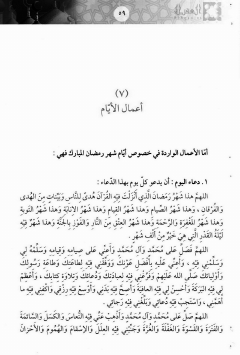 ٥٩
(٧)
أعمال الأيّام
أمّا الأعمال الواردة في خصوص أيّام شهر رمضان المبارك فهي:
١. دعاء اليوم: أن يدعو كلّ يوم بهذا الدُّعاء:
اللهمّ هذا شَهْرُ رَمَضَانَ الَّذِي أَنْزَلْتَ فِيهِ الْقُرْآنَ هُدًى لِلنَّاسِ وَبَيِّنَاتٍ مِنَ الْهُدَى
وَالْفُرْقَانِ، وَهَذَا شَهْرُ الصِّيَامِ وَهَذَا شَهْرُ الْقِيَامِ وَهَذَا شَهْرُ الإِنَابَةِ وَهَذَا شَهْرُ التَّوْبَةِ
وَهَذَا شَهْرُ الْمَغْفِرَةِ وَالرَّحْمَةِ وَهَذَا شَهْرُ الْعِتْقِ مِنَ النَّارِ وَالْفَوْزِ بِالْجَنَّةِ وَهَذَا شَهْرٌ فِيهِ
لَيْلَةُ الْقَدْرِ الَّتِي هِيَ خَيْرٌ مِنْ أَلْفِ شَهْرٍ.
اللهمَّ فَصَلِّ عَلَى مُحَمَّدٍ وَآلِ مُحَمَّدٍ وَأَعِنِّي عَلَى صِيَامِهِ وَقِيَامِهِ وَسَلِّمْهُ لِي
وَسَلِّمْنِي فِيهِ، وَأَعِنِّي عَلَيْهِ بِأَفْضَلِ عَوْنِكَ وَوَفِّقْنِي فِيهِ لِطَاعَتِكَ وَطَاعَةِ رَسُولِكَ
وَأَوْلِيَائِكَ صَلَّى اللهُ عَلَيْهِمْ وَفَرِّغْنِي فِيهِ لِعِبَادَتِكَ وَدُعَائِكَ وَتِلَاوَةِ كِتَابِكَ، وَأَعْظِمْ
لِي فِيهِ الْبَرَكَةَ وَأَحْسِنْ لِي فِيهِ الْعَافِيَةَ وَأَصِحَّ فِيهِ بَدَنِي وَأَوْسِعْ فِيهِ رِزْقِي وَاكْفِنِي فِيهِ مَا
أَهَمَّنِي، وَاسْتَجِبْ فِيهِ دُعَائِي وَبَلِّغْنِي فِيهِ رَجَائِي.
اللهمَّ صَلِّ عَلَى مُحَمَّدٍ وَآلِ مُحَمَّدٍ وَأَذْهِبْ عَنِّي فِيهِ النُّعَاسَ وَالْكَسَلَ وَالسَّآمَةَ
وَالْفَتْرَةَ وَالْقَسْوَةَ وَالْغَفْلَةَ وَالْغِرَّةَ وَجَنِّبْنِي فِيهِ الْعِلَلَ وَالأَسْقَامَ وَالْهُمُومَ وَالأَحْزَانَ